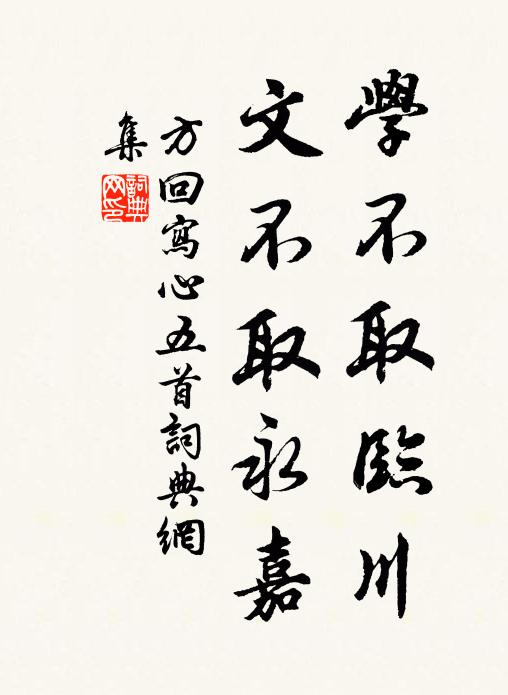 學不取臨川
文不取永嘉
方回寫心五首詞典網
集
詞典網印